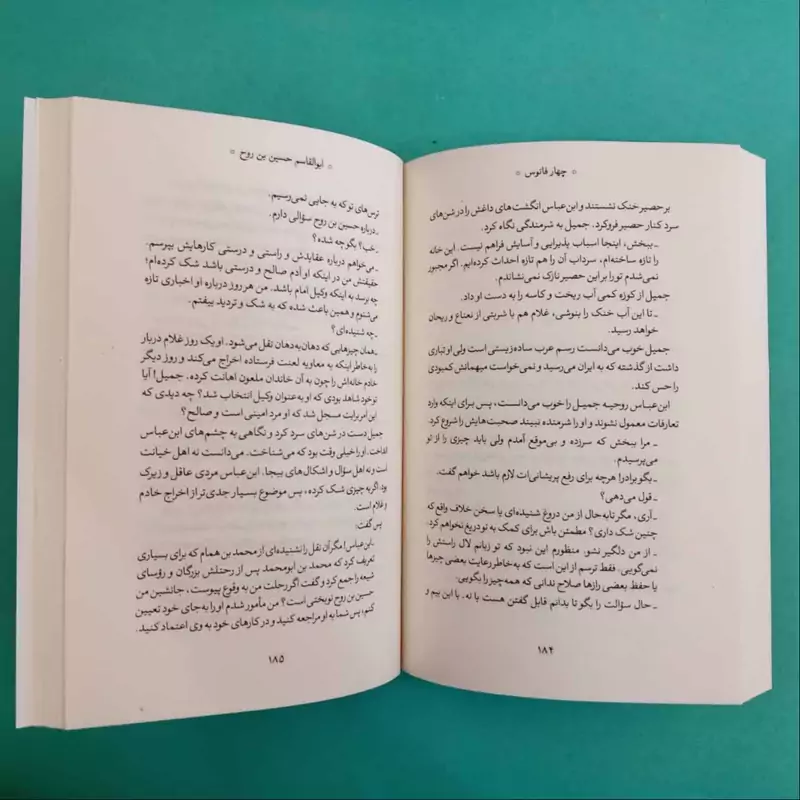 چهار فانوس
بر حصیر خنک نشستند و ابن‌عباس انگشت‌های داغش را در شن‌های
سرد کنار حصیر فروکرد. جمیل به شرمندگی نگاه کرد.
ـ ببخش، اینجا اسباب پذیرایی و آسایش فراهم نیست. این خانه
را تازه ساخته‌ام، سرداب آن را هم تازه احداث کرده‌ایم. اگر مجبور
نمی‌شدم تو را بر این حصیر نازک نمی‌نشاندم.
جمیل از کوزه کمی آب ریخت و کاسه را به دست او داد.
ـ تا این آب خنک را بنوشی، غلام هم با شربتی از نعناع و ریحان
خواهد رسید.
جمیل خوب می‌دانست رسم عرب ساده‌زیستی است ولی او تباری
داشت از گذشته که به ایران می‌رسید و نمی‌خواست میهمانش کمبودی
را حس کند.
ابن‌عباس روحیه جمیل را خوب می‌دانست، پس برای اینکه وارد
تعارفات معمول نشوند و او را شرمنده نبیند صحبت‌هایش را شروع کرد.
ـ مرا ببخش که سرزده و بی‌موقع آمدم ولی باید چیزی را از تو
می‌پرسیدم.
ـ بگو برادر! هرچه برای رفع پریشانی‌ات لازم باشد خواهم گفت.
ـ قول می‌دهی؟
ـ آری، مگر تابه‌حال از من دروغ شنیده‌ای یا سخن خلاف واقع که
چنین شک داری؟ مطمئن باش برای کمک به تو دریغ نخواهم کرد.
ـ از من دلگیر نشو. منظورم این نبود که تو زبانم لال راستش را
نمی‌گویی. فقط ترسم از این است که به‌خاطر رعایت بعضی چیزها
یا حفظ بعضی رازها صلاح ندانی که همه‌چیز را بگویی.
ـ حال سؤالت را بگو تا بدانم قابل گفتن هست یا نه. با این بیم و
۱۸۴
ابوالقاسم حسین بن روح
ترس‌های تو که به جایی نمی‌رسیم.
ـ درباره حسین بن روح سؤالی دارم.
ـ خب؟ بگو چه شده؟
ـ می‌خواهم درباره عقایدش و راستی و درستی کارهایش بپرسم.
حقیقتش من در اینکه او آدم صالح و درستی باشد شک کرده‌ام؛
چه برسد به اینکه وکیل امام باشد. من هر روز درباره او اخباری تازه
می‌شنوم و همین باعث شده که به شک و تردید بیفتم.
ـ چه شنیده‌ای؟
ـ همان چیزهایی که دهان‌به‌دهان نقل می‌شود. او یک روز غلام دربار
را به‌خاطر اینکه به معاویه لعنت فرستاده اخراج می‌کند و روز دیگر
خادم خانه‌اش را چون به آن خاندان ملعون اهانت کرده. جمیل! آیا
تو خود شاهد بودی که او به‌عنوان وکیل انتخاب شد؟ چه دیدی که
این امر برایت مسجل شد که او مرد امینی است و صالح؟
جمیل دست در شن‌های سرد کرد و نگاهی به چشم‌های ابن‌عباس
انداخت. او را خیلی وقت بود که می‌شناخت. می‌دانست نه اهل خیانت
است و نه اهل سؤال و اشکال‌های بیجا. ابن‌عباس مردی عاقل و زیرک
بود. اگر به چیزی شک کرده، پس موضوع بسیار جدی‌تر از اخراج خادم
و غلام است.
پس گفت:
ـ ابن‌عباس! مگر آن نقل را نشنیده‌ای از محمد بن همام که برای بسیاری
تعریف کرد که محمد بن ابومحمد پس از رحلتش بزرگان و رؤسای
شیعه را جمع کرد و گفت اگر رحلت من به وقوع پیوست، جانشین من
حسین بن روح نوبختی است؟ من مأمور شدم او را به‌جای خود تعیین
کنم؛ پس شما به او مراجعه کنید و در کارهای خود به وی اعتماد کنید.
۱۸۵